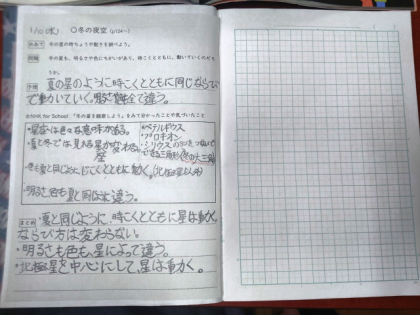 1/10(水) ○冬の夜空 (p124~)
めあて 冬の星の明るさや動きを調べよう。
問題 冬の星も、明るさや色にちがいがあり、時こくとともに、動いていくのだろうか。
予想 夏の星のように時こくとともに同じならび
で動いていく。明るさは全て違う。
☆NHK for School 「冬の星を観察しよう」をみて分かったことや気づいたこと
・星座は色々な意味がある。
・夏と冬では見える星が変わる。
座
・冬も夏と同じように時こくとともに動く。(北極星以外)
・明るさ、色も夏と同じように違う。
・ベテルギウス
・プロキオン
・シリウスの3つをつないで
できる三角形(冬の大三角)
まとめ ・夏と同じように、時こくとともに星は動く。
ならび方は変わらない。
・明るさも色も、星によって違う。
・北極星を中心にして、星は動く。